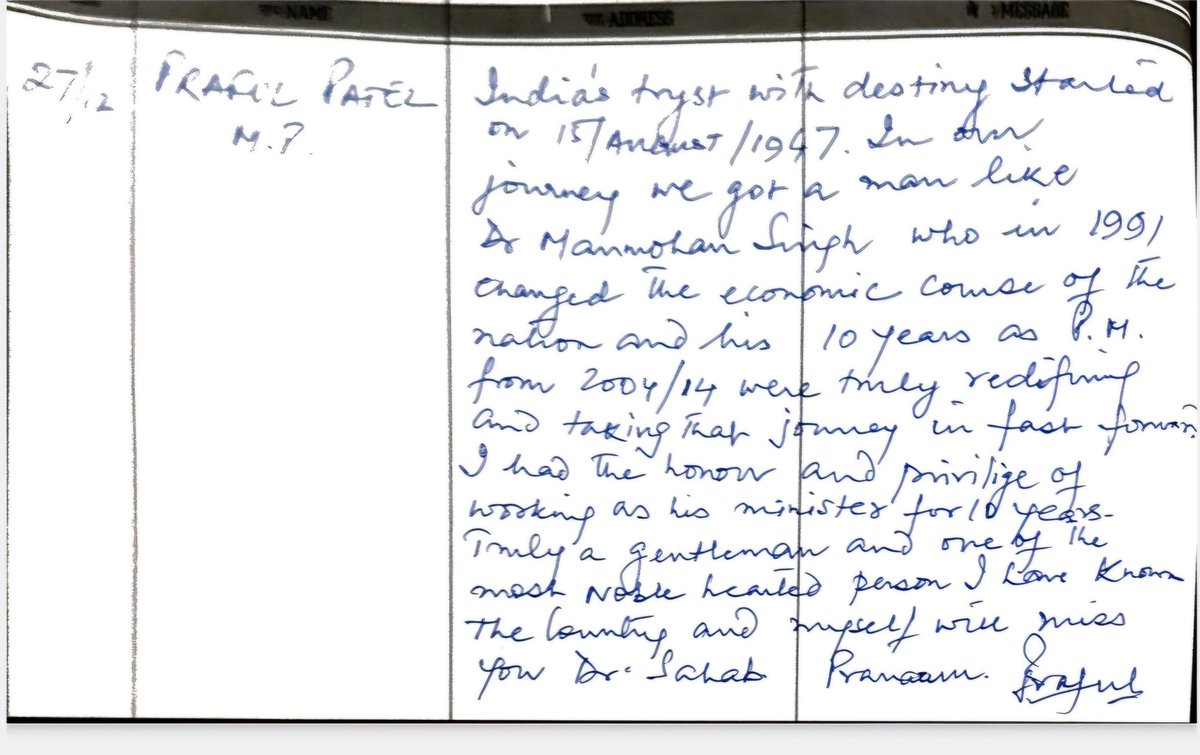 NAME ADDRESS MESSAGE
27/12 PRAFUL PATEL
M.P.
India's tryst with destiny Started
on 15/August/1947. In our
journey we got a man like
Dr Manmohan Singh who in 1991
changed the economic course of the
nation and his 10 years as P.M.
from 2004/14 were truly redifining
and taking that journey in fast forward
I had the honour and privilige of
working as his minister for 10 years.
Truly a gentleman and one of the
most Noble hearted person I have known
The Country and myself will miss
you Dr. Sahab Pranaam. Praful